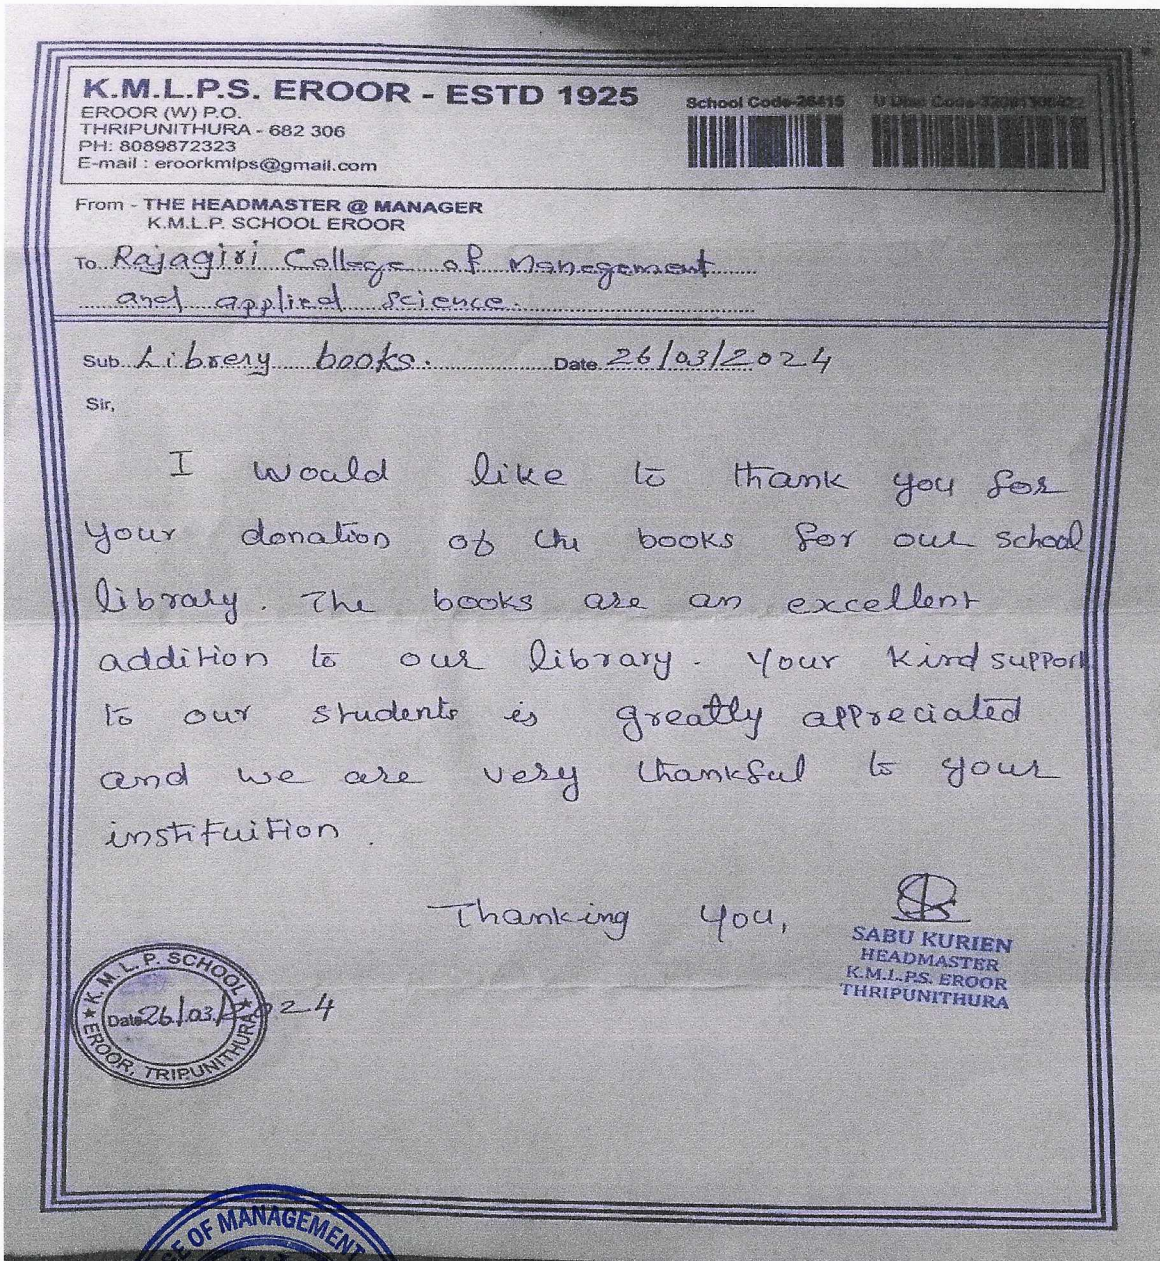 K.M.L.P.S. EROOR - ESTD 1925
EROOR (W) P.O.
THRIPUNITHURA - 682 306
PH: 8089872323
E-mail : eroorkmlps@gmail.com
School Code-26415 U Dise Code
From - THE HEADMASTER @ MANAGER
K.M.L.P. SCHOOL EROOR
To Rajagiri College of Management
and applied science.
Sub Librery books. Date 26/03/2024
Sir,
I would like to thank you for
your donation of the books for our school
library. The books are an excellent
addition to our library. Your kind support
to our students is greatly appreciated
and we are very thankful to your
instituition.
Thanking you,
SABU KURIEN
HEADMASTER
K.M.L.P.S. EROOR
THRIPUNITHURA
K. M. L. P. SCHOOL
Date 26/03/2024
EROOR, TRIPUNITHURA
OF MANAGEMENT